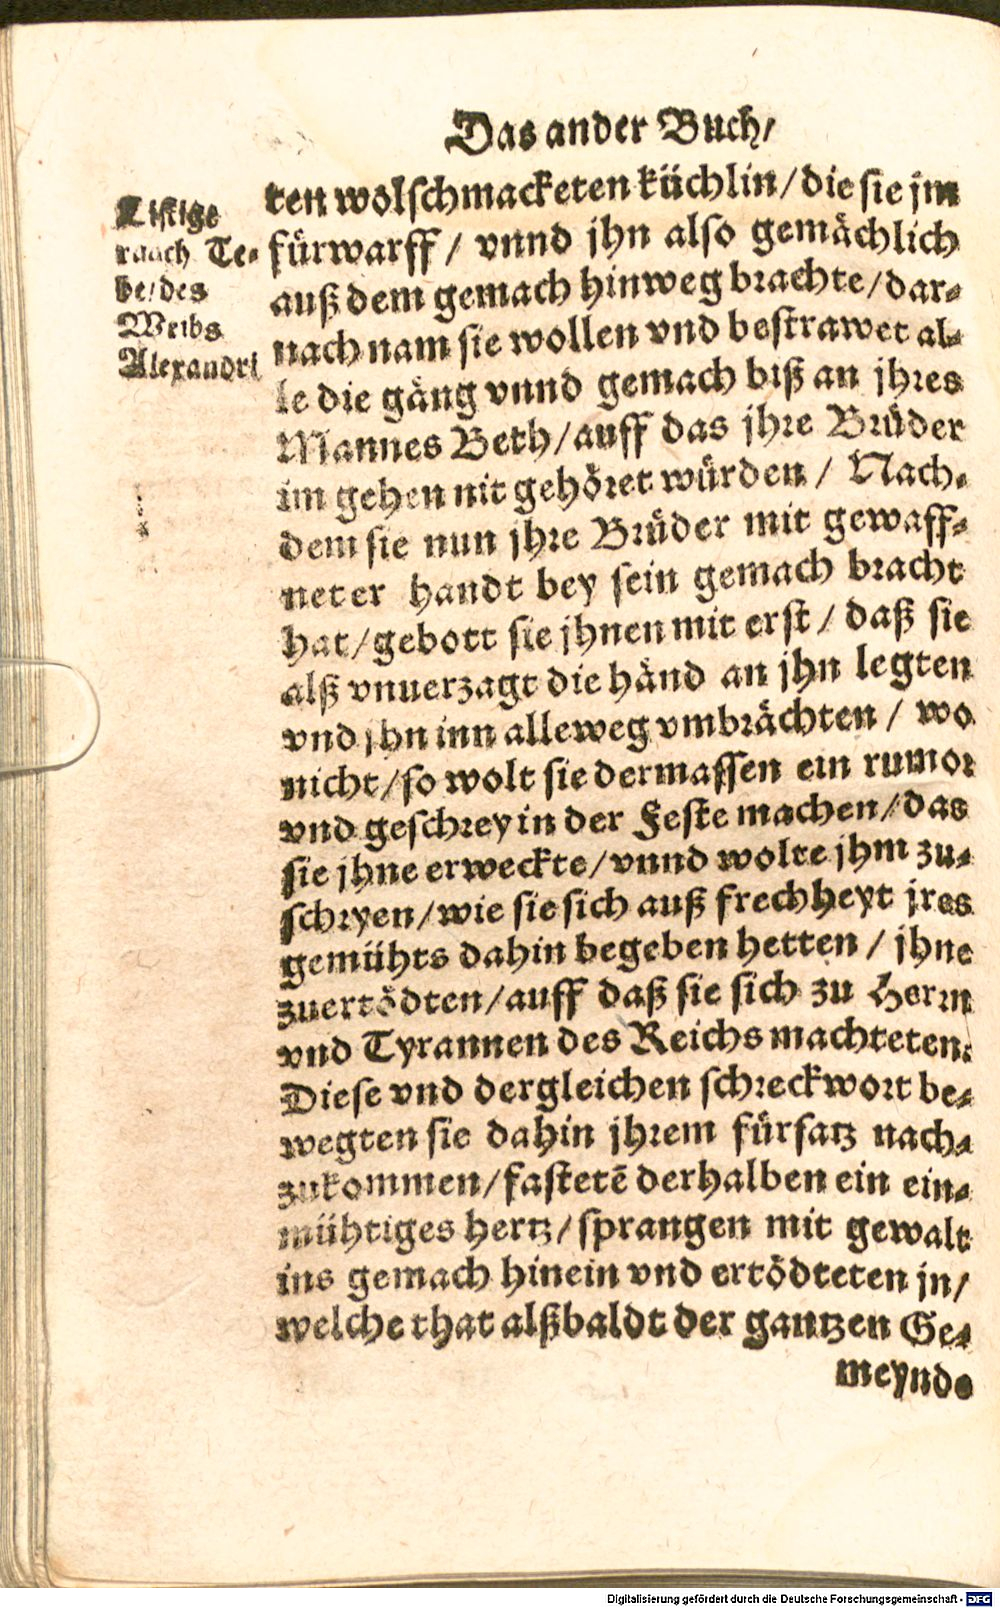 Das ander Buch/
Listige
raach Te-
be/des
Weibs
Alexandri
ten wolschmacketen küchlin/die sie jm
fürwarff/ vnnd jhn also gemächlich
auß dem gemach hinweg brachte/dar-
nach nam sie wollen vnd bestrawet al-
le die gäng vnnd gemach biß an jhres
Mannes Beth/auff das jhre Brüder
im gehen nit gehöret würden/ Nach-
dem sie nun jhre Brüder mit gewaff-
neter handt bey sein gemach bracht
hat/gebott sie jhnen mit erst/ daß sie
alß vnuerzagt die händ an jhn legten
vnd jhn inn alleweg vmbrächten/ wo
nicht/so wolt sie dermassen ein rumor
vnd geschrey in der Feste machen/das
sie jhne erweckte/vnnd wolte jhm zu-
schryen/wie sie sich auß frechheyt jres
gemühts dahin begeben hetten/ jhne
zuertödten/auff daß sie sich zu Herrn
vnd Tyrannen des Reichs machteten.
Diese vnd dergleichen schreckwort be-
wegten sie dahin jhrem fürsatz nach-
zukommen/fastetē derhalben ein ein-
mühtiges hertz/sprangen mit gewalt
ins gemach hinein vnd ertödteten jn/
welche that alßbaldt der gantzen Ge-
meynde
Digitalisierung gefördert durch die Deutsche Forschungsgemeinschaft - DFG